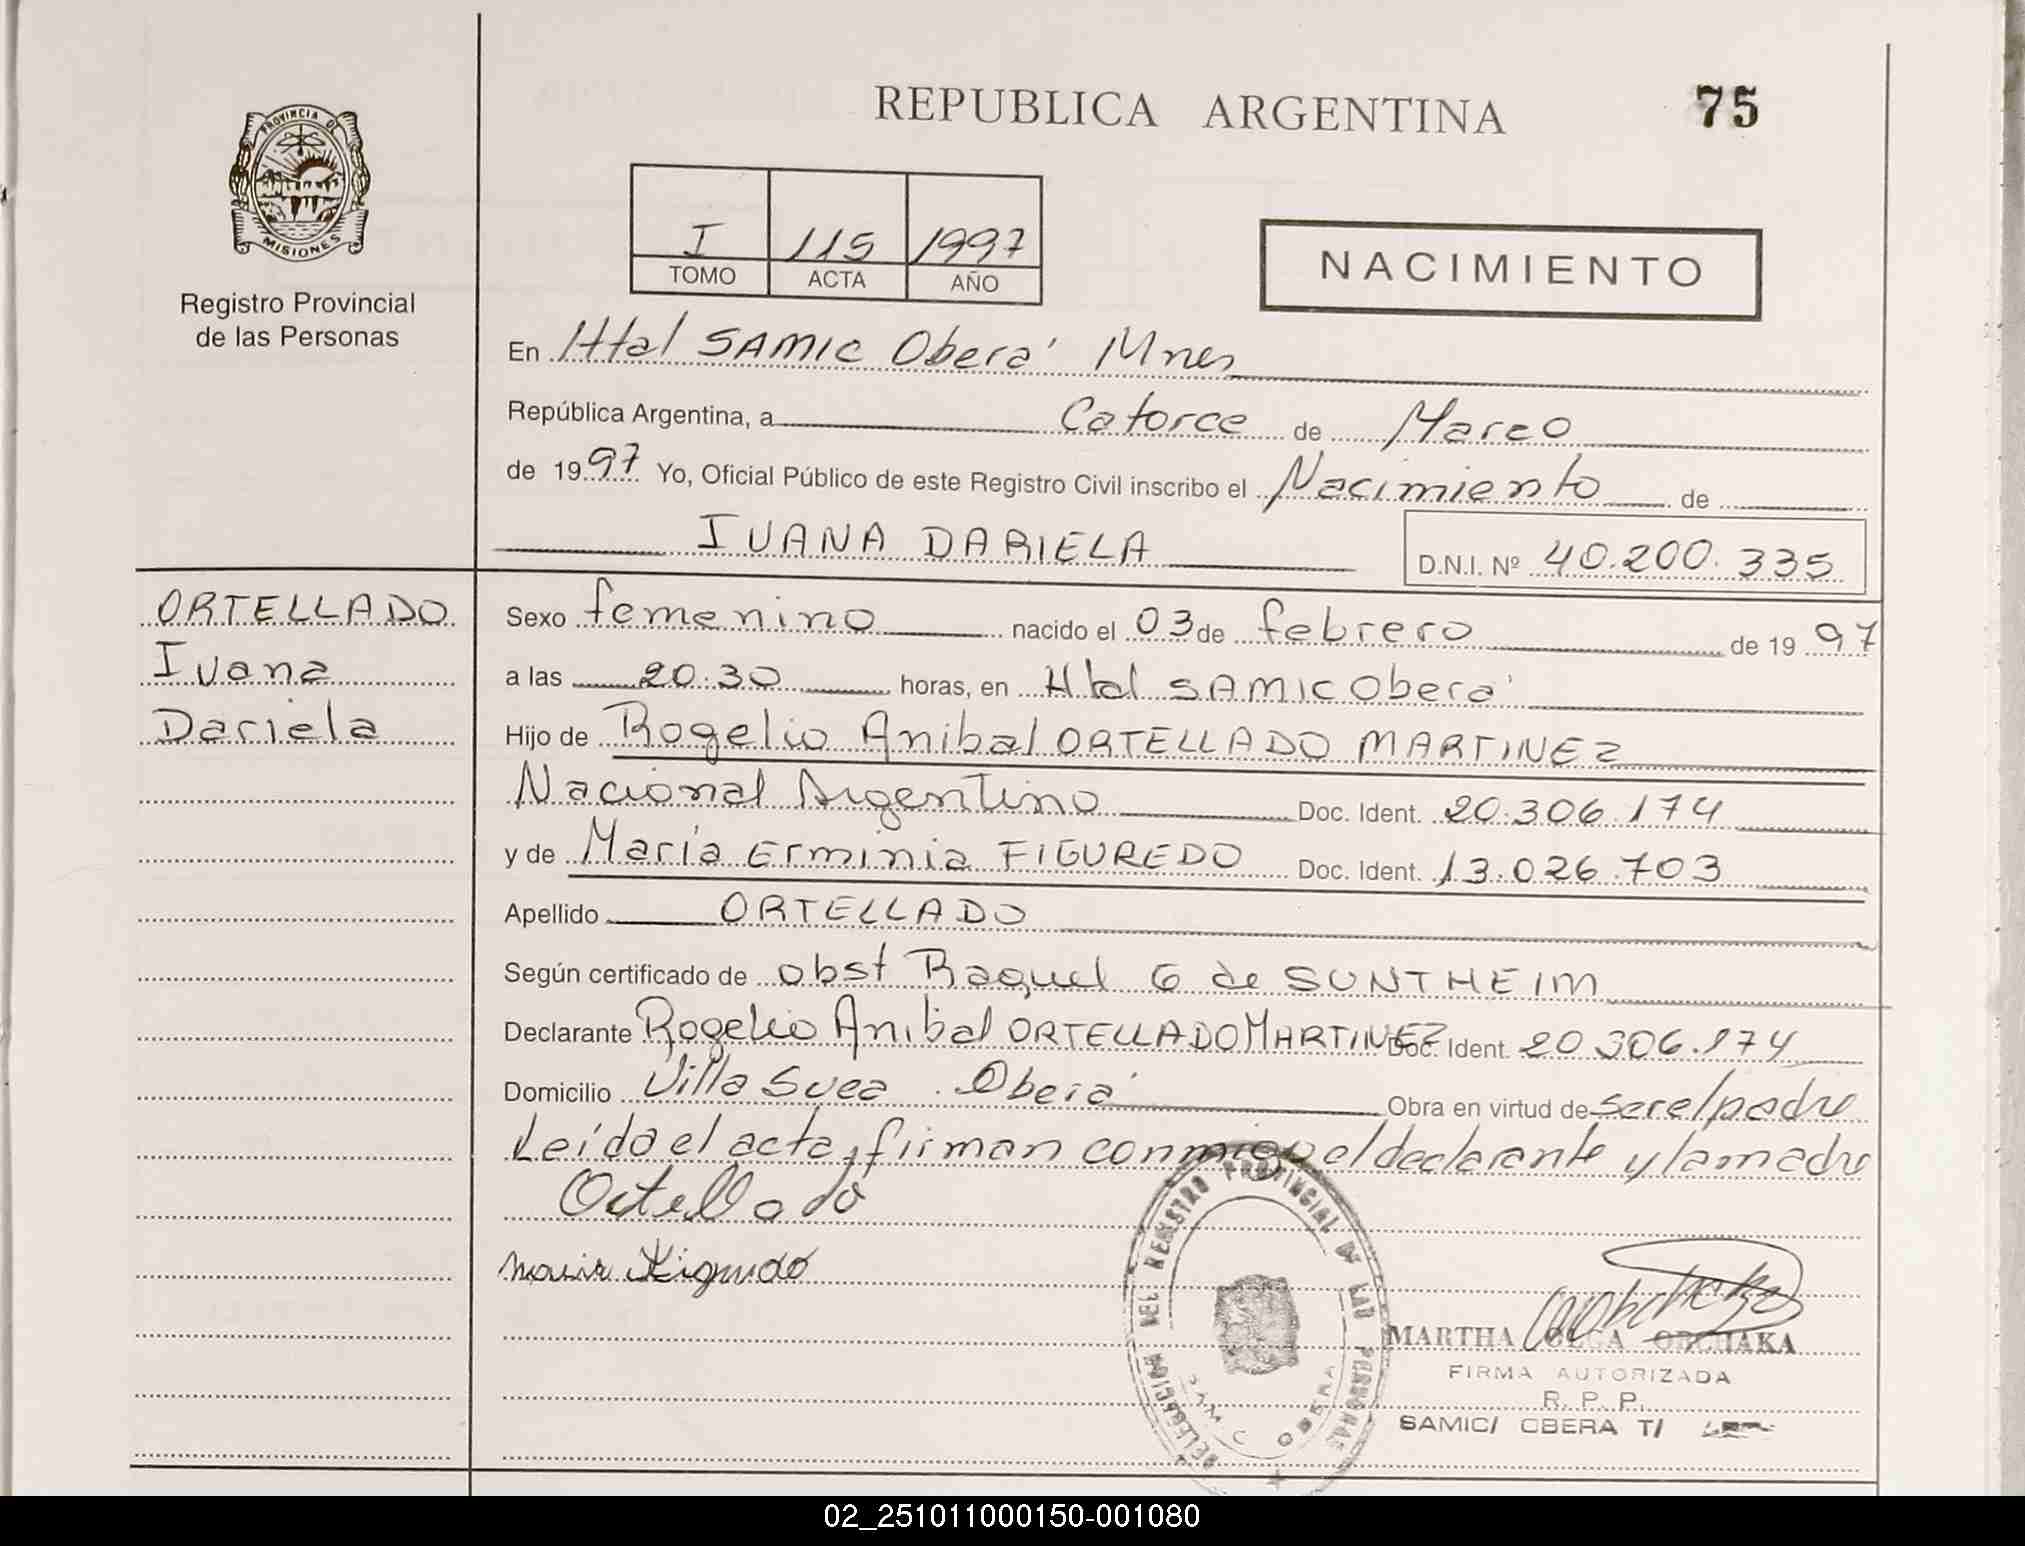 REPUBLICA ARGENTINA
75
PROVINCIA DE
MISIONES
Registro Provincial
de las Personas
I 115 1997
TOMO ACTA AÑO
NACIMIENTO
En Htal SAMIC Oberá Mnes
República Argentina, a Catorce de Marzo
de 1997 Yo, Oficial Público de este Registro Civil inscribo el Nacimiento de
IVANA DARIELA
D.N.I. Nº 40.200.335
ORTELLADO
Ivana
Dariela
Sexo femenino nacido el 03 de febrero de 1997
a las 20:30 horas, en Htal SAMIC Oberá
Hijo de Rogelio Anibal ORTELLADO MARTINEZ
Nacional Argentino Doc. Ident. 20.306.174
y de María Erminia FIGUREDO Doc. Ident. 13.026.703
Apellido ORTELLADO
Según certificado de obst Raquel G de SUNTHEIM
Declarante Rogelio Anibal ORTELLADO MARTINEZ Doc. Ident. 20 306.174
Domicilio Villa Svea. Oberá Obra en virtud de ser el padre
Leído el acta, firman conmigo el declarante y la madre
Ortellado
DELEGACION DEL REGISTRO PROVINCIAL DE LAS PERSONAS
SAMIC OBERA
MARTHA OLGA OBCHAKA
FIRMA AUTORIZADA
R. P. P.
SAMIC/ OBERA T/
02_251011000150-001080